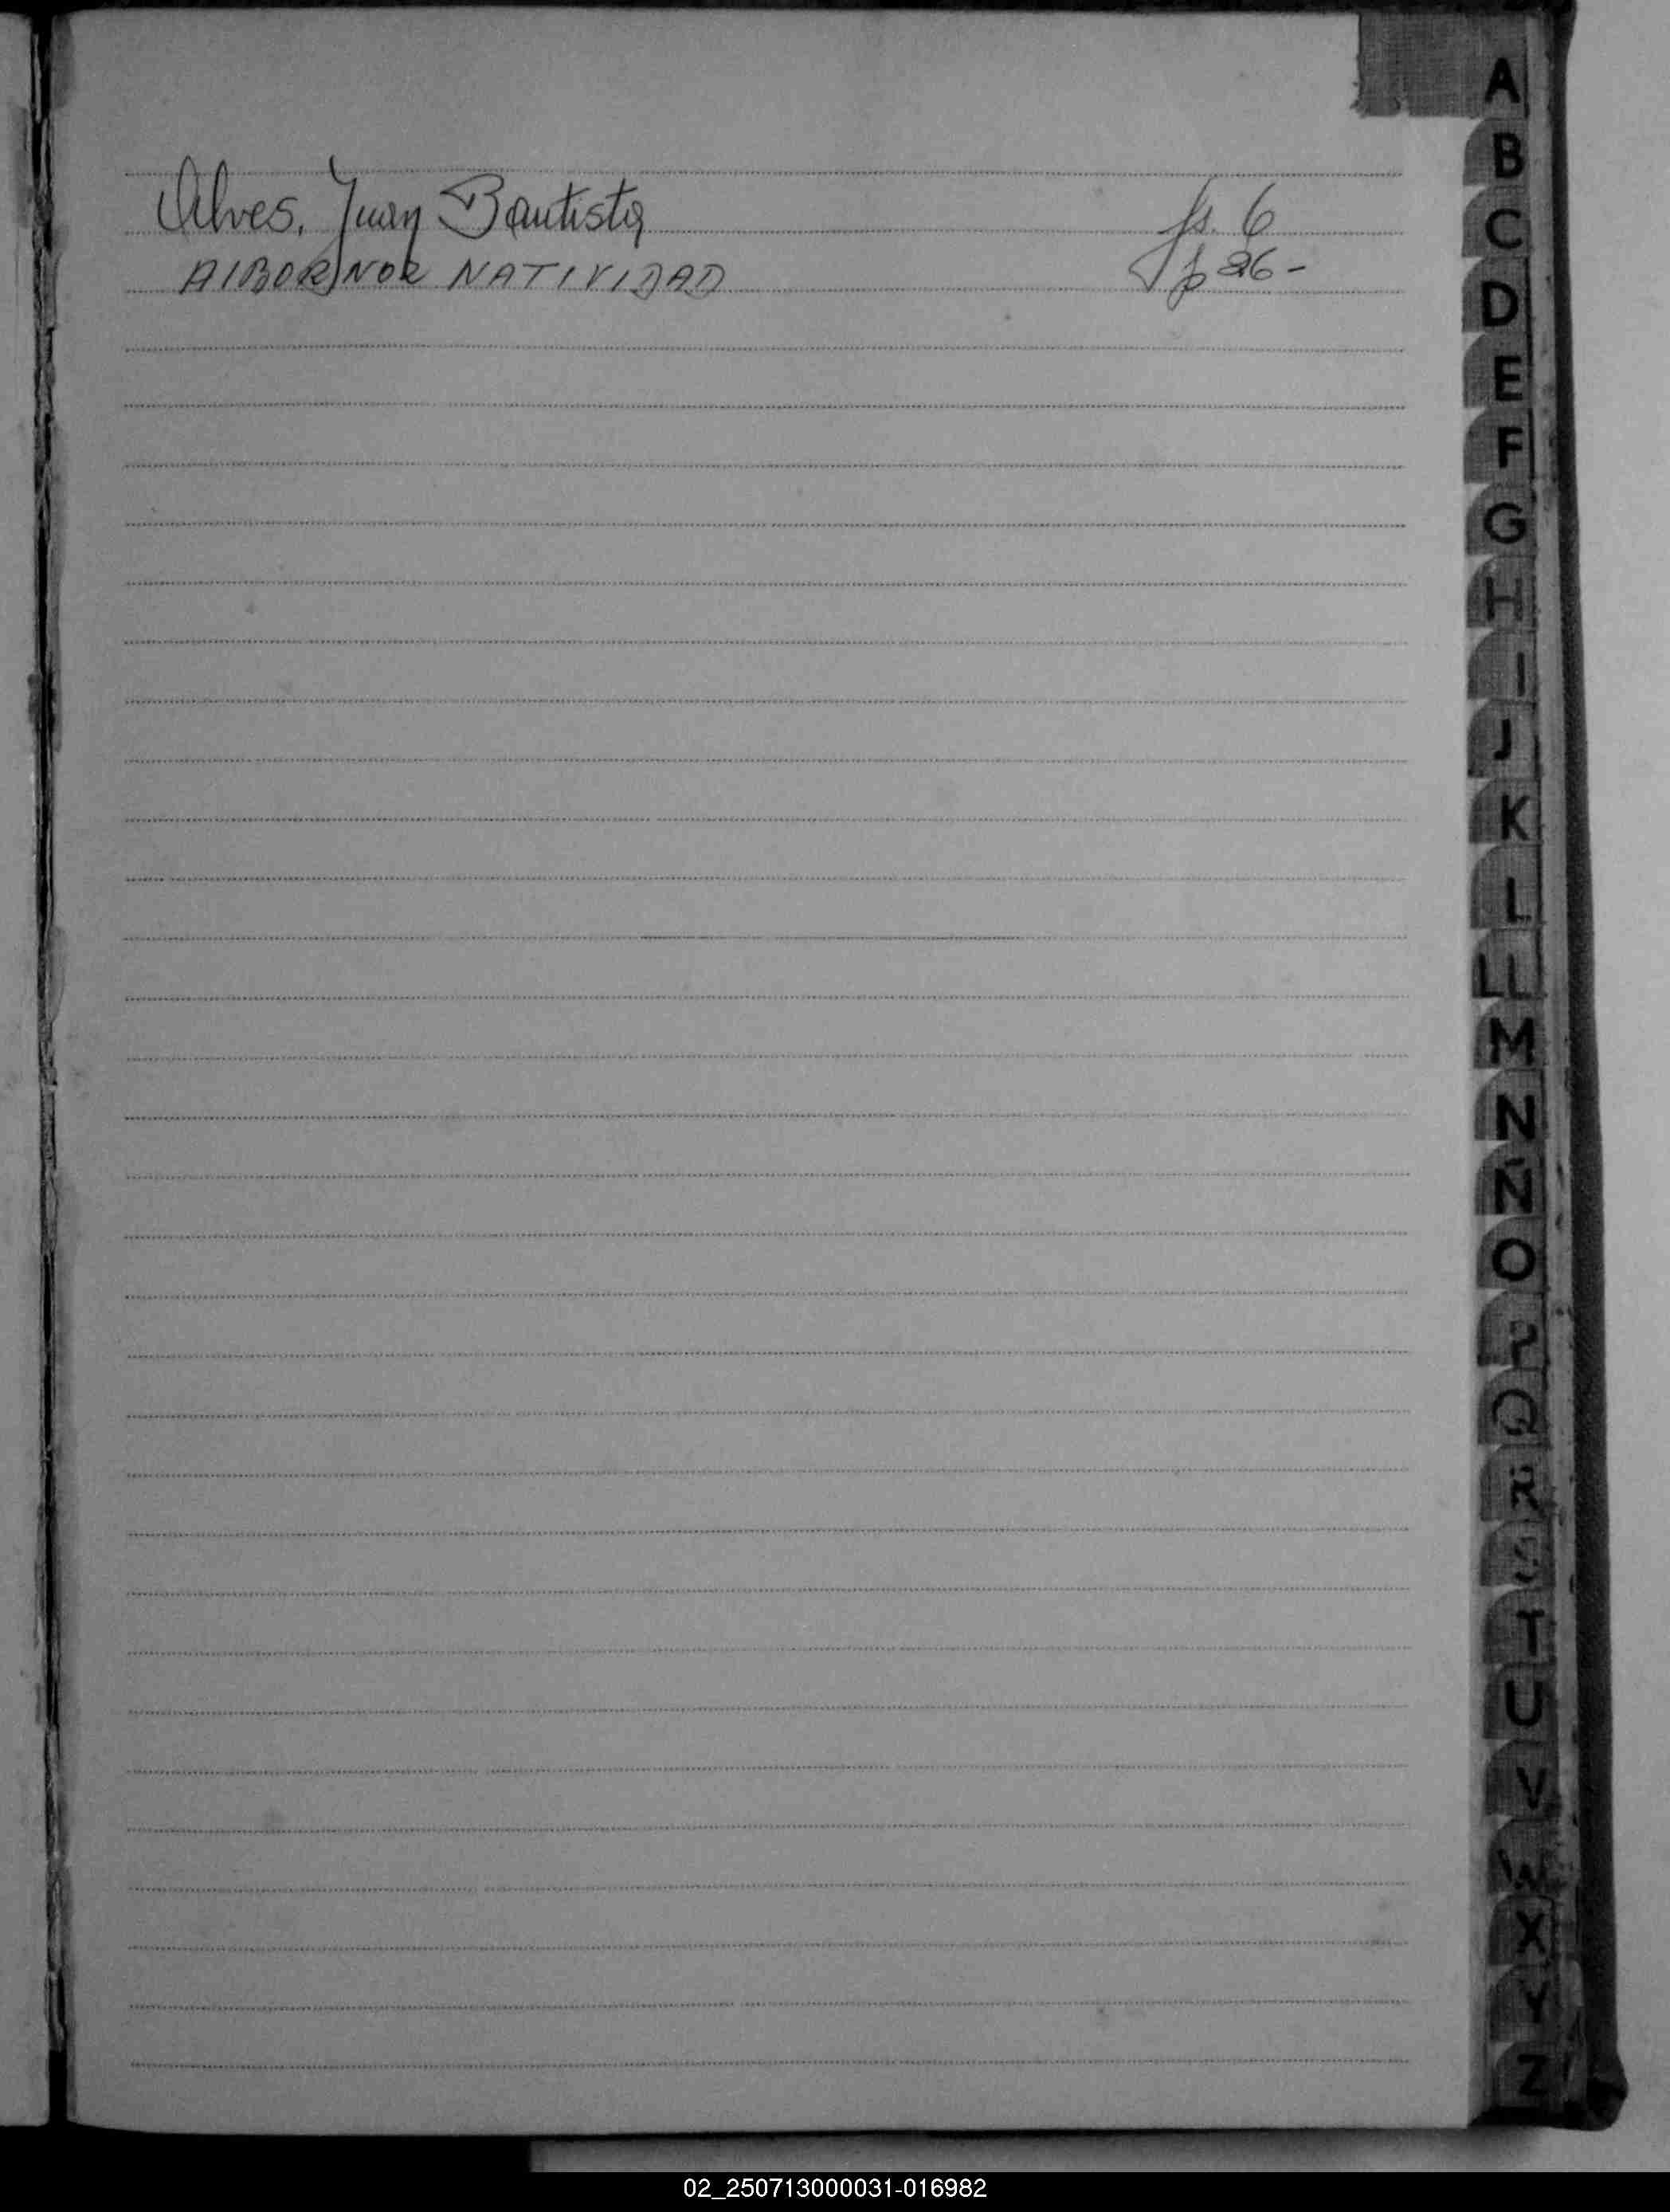 Alves, Juan Bautista fs. 6
AlBORNOR NATIVIDAD f 26-
A
B
C
D
E
F
G
H
I
J
K
L
LL
M
N
Ñ
O
P
Q
R
S
T
U
V
W
X
Y
Z
02_250713000031-016982